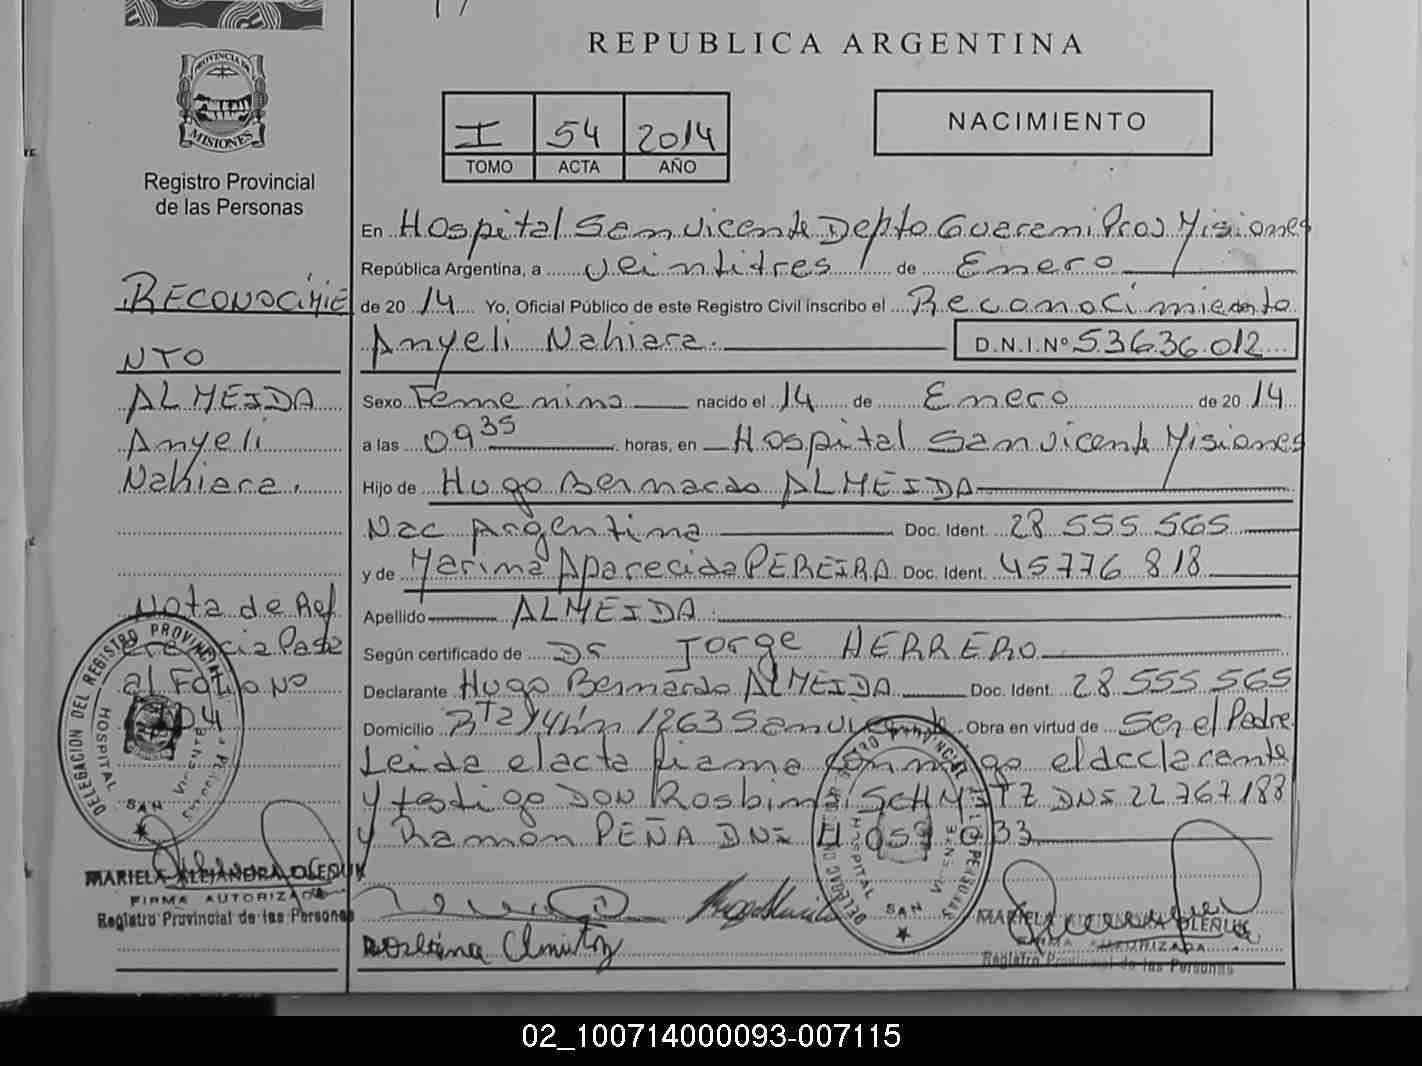 REPUBLICA ARGENTINA
PROVINCIA DE
MISIONES
Registro Provincial
de las Personas
I 54 2014
TOMO ACTA AÑO
NACIMIENTO
En Hospital San Vicente Depto Guarani Prov Misiones
República Argentina, a veintitres de Enero
de 20 14 Yo, Oficial Público de este Registro Civil inscribo el Reconocimiento
Anyeli Nahiara. D.N.I.Nº 53636.012
Sexo Femenino nacido el 14 de Enero de 20 14
a las 09 35 horas, en Hospital San Vicente Misiones
Hijo de Hugo Bernardo ALMEIDA
Nac Argentina Doc. Ident. 28 555 565
y de Marina Aparecida PEREIRA Doc. Ident. 45776 818
Apellido ALMEIDA
Según certificado de Dr Jorge HERRERO
Declarante Hugo Bernardo ALMEIDA Doc. Ident. 28 555 565
Domicilio 1263 San Vicente Obra en virtud de Ser el Padre
Leida el acta firma conmigo el declarante
y testigo DON SCHMITZ DNI 22 767 188
y Ramón PEÑA DNI
RECONOCIMIE
NTO
ALMEIDA
Anyeli
Nahiara.
Nota de Ref
erencia Pase
al Folio Nº
DELEGACION DEL REGISTRO PROVINCIAL
HOSPITAL
SAN VICENTE
MARIELA ALEJANDRA OLEÑUK
FIRMA AUTORIZADA
Registro Provincial de las Personas
HOSPITAL
SAN
MARIELA ALEJANDRA OLEÑUK
FIRMA AUTORIZADA
Registro Provincial de las Personas
02_100714000093-007115